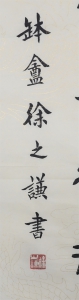 缽盦徐之謙書